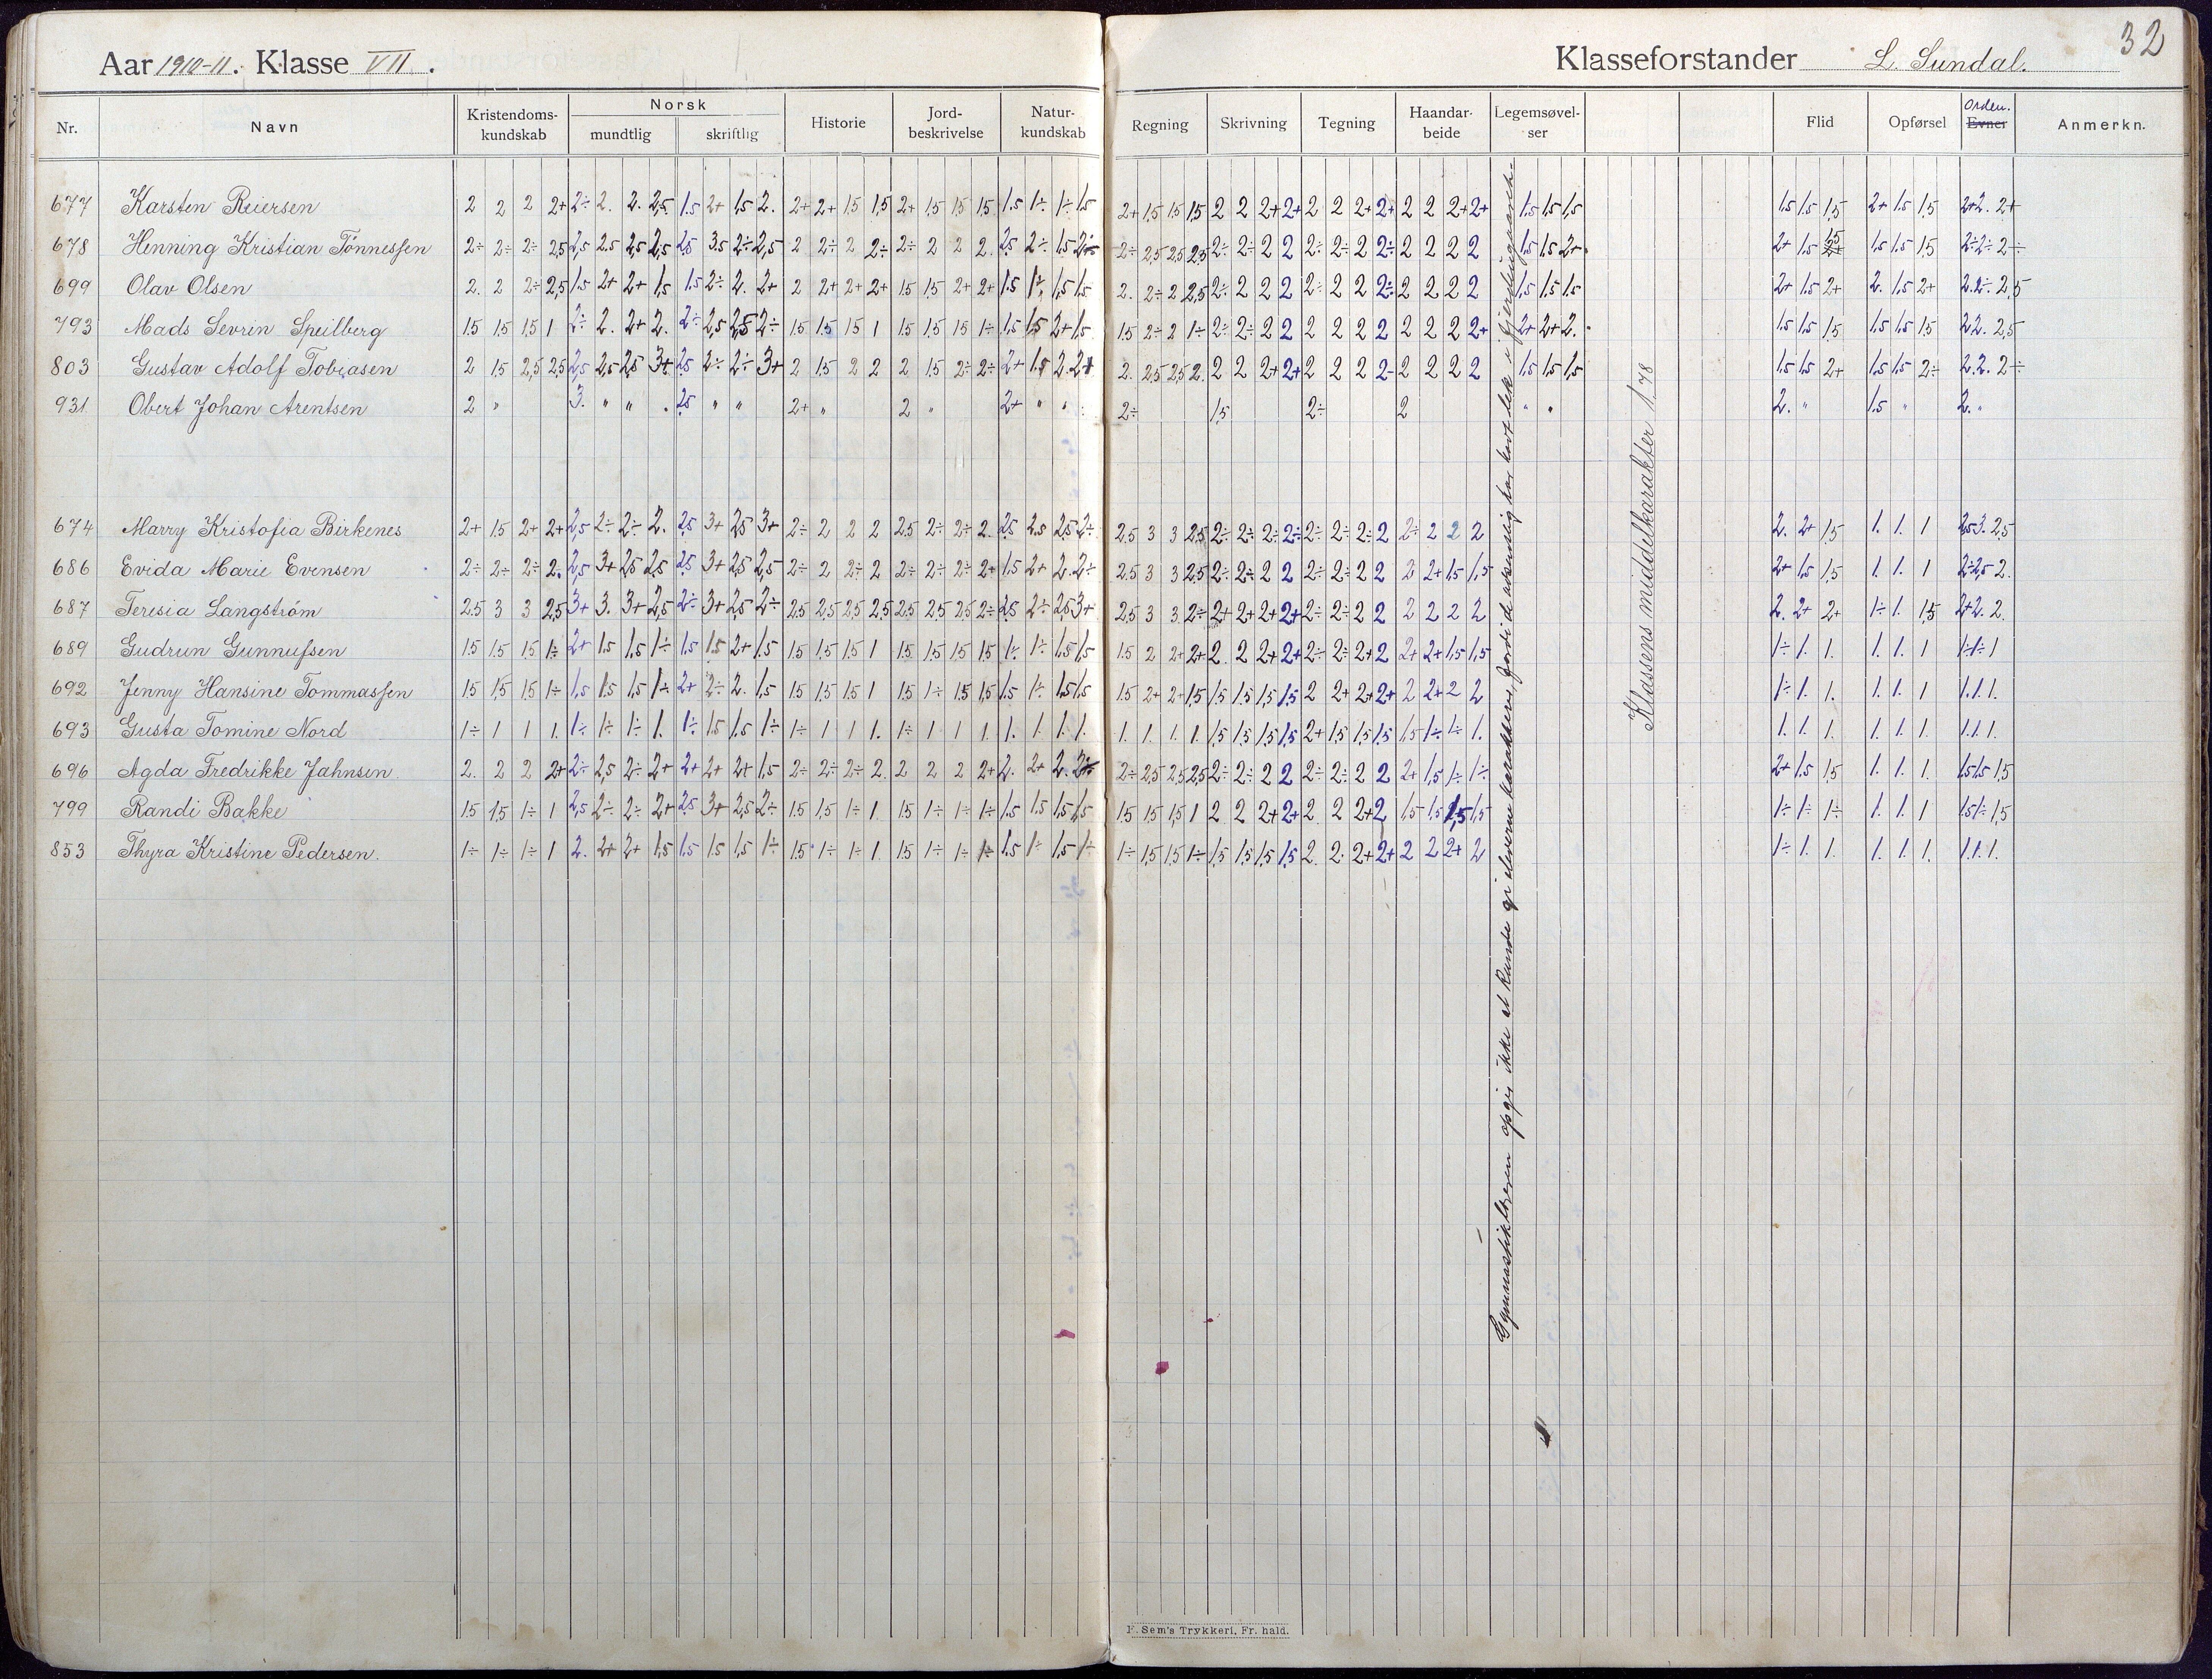 Aar 1910-11. Klasse VII.
Klasseforstander L. Sundal.
32
Nr. Navn Kristendoms-kundskab Norsk mundtlig skriftlig Historie Jord-beskrivelse Natur-kundskab Regning Skrivning Tegning Haandar-beide Legemsøvel-ser Flid Opførsel Orden. Evner Anmerkn.
677 Karsten Reiersen 2 2 2 2+ 2÷ 2. 2. 2,5 1.5 2+ 1,5 2. 2+ 2+ 15 1,5 2+ 15 15 15 1.5 1÷ 1÷ 1.5 2+ 15 15 15 2 2 2+ 2+ 2 2 2+ 2+ 2 2 2+ 2+ 1.5 1.5 1,5 1.5 1.5 1,5 2+ 1.5 1,5 2+ 2. 2+
678 Henning Kristian Tønnessen 2÷ 2÷ 2÷ 2,5 2,5 2.5 2,5 2,5 2.5 3.5 2÷ 2,5 2 2÷ 2 2÷ 2÷ 2 2 2. 2.5 2÷ 1.5 2÷ 2÷ 2,5 2,5 2,5 2÷ 2÷ 2 2 2÷ 2÷ 2 2÷ 2 2 2 2 1.5 1.5 2+ 2+ 1.5 1.5 1.5 1.5 15 2÷ 2÷ 2÷
699 Olav Olsen 2. 2 2÷ 2,5 1.5 2+ 2+ 1,5 1.5 2÷ 2. 2+ 2 2+ 2+ 2+ 15 1,5 2+ 2+ 1.5 1÷ 1,5 1.5 2. 2÷ 2 2,5 2÷ 2 2 2 2÷ 2 2 2÷ 2 2 2 2 1,5 1,5 1.5 2+ 1.5 2+ 2. 1.5 2+ 2. 2÷ 2,5
793 Mads Sevrin Speilberg 15 15 15 1 2÷ 2. 2+ 2. 2÷ 2,5 2,5 2÷ 15 1.5 15 1 15 1.5 15 1÷ 1.5 1.5 2+ 1.5 15 2÷ 2 1÷ 2÷ 2÷ 2 2 2 2 2 2 2 2 2 2+ 2+ 2+ 2. 1.5 1.5 1,5 1.5 1.5 15 2 2. 2,5
803 Gustav Adolf Tobiasen 2 15 2,5 2,5 2,5 2,5 2,5 3+ 2.5 2÷ 2÷ 3+ 2 1.5 2 2 2 15 2÷ 2÷ 2+ 1.5 2. 2+ 2. 2,5 2,5 2. 2 2 2+ 2+ 2 2 2 2- 2 2 2 2 1.5 1.5 1.5 1.5 1.5 2+ 1.5 1.5 2÷ 2. 2. 2÷
931 Obert Johan Arentsen 2 " 3. " " . 2.5 " " 2+ " 2 " 2+ " " 2÷ 1,5 2÷ 2 " " 2. " 1.5 " 2. "
674 Marry Kristofia Birkenes 2+ 15 2+ 2+ 2,5 2÷ 2÷ 2. 2.5 3+ 2,5 3+ 2÷ 2 2 2 2.5 2÷ 2÷ 2. 2.5 2.5 2,5 2÷ 2,5 3 3 2,5 2÷ 2÷ 2÷ 2÷ 2÷ 2÷ 2÷ 2 2÷ 2 2 2 2. 2+ 1,5 1. 1. 1 2,5 3. 2,5
686 Evida Marie Evensen 2÷ 2÷ 2÷ 2. 2,5 3+ 2,5 2,5 2.5 3+ 2,5 2,5 2÷ 2 2÷ 2 2÷ 2÷ 2÷ 2+ 1.5 2+ 2. 2÷ 2,5 3 3 2,5 2÷ 2÷ 2 2 2÷ 2÷ 2 2 2 2+ 1,5 1,5 2+ 1.5 1,5 1. 1. 1 2÷ 2,5 2.
687 Teresia Langstrøm 2.5 3 3 2,5 3+ 3. 3+ 2,5 2÷ 3+ 2,5 2÷ 2.5 2,5 2,5 2,5 2,5 2,5 2,5 2÷ 2.5 2÷ 2,5 3+ 2,5 3 3 2÷ 2+ 2+ 2+ 2+ 2÷ 2÷ 2 2 2 2 2 2 2. 2+ 2+ 1÷ 1. 1,5 2+ 2. 2.
689 Gudrun Gunnufsen 15 1.5 15 1÷ 2+ 1.5 1,5 1÷ 1.5 1.5 2+ 1.5 15 1.5 15 1 15 1,5 15 15 1÷ 1÷ 1.5 1.5 15 2 2+ 2+ 2. 2 2+ 2+ 2÷ 2÷ 2+ 2 2+ 2+ 1.5 1,5 1÷ 1. 1. 1. 1. 1 1÷ 1÷ 1
692 Jenny Hansine Tommassen 15 15 15 1÷ 1,5 1.5 1,5 1÷ 2+ 2÷ 2. 1,5 15 15 15 1 15 1÷ 15 1,5 1.5 1÷ 1.5 1.5 15 2+ 2+ 15 1.5 1.5 1.5 1.5 2 2+ 2+ 2+ 2 2+ 2 2 1÷ 1. 1. 1. 1. 1 1. 1. 1.
693 Gusta Tomine Nord 1÷ 1 1 1. 1÷ 1÷ 1÷ 1. 1÷ 15 1.5 1÷ 1÷ 1 1 1. 1÷ 1 1 1. 1. 1. 1. 1. 1. 1. 1. 1. 1,5 1,5 1,5 1,5 2+ 1,5 1,5 1,5 1,5 1÷ 1÷ 1. 1. 1. 1. 1. 1. 1. 1. 1. 1.
696 Agda Fredrikke Jahnsen. 2. 2 2 2+ 2÷ 2,5 2÷ 2+ 2+ 2+ 2+ 1,5 2÷ 2÷ 2÷ 2. 2 2 2 2+ 2. 2+ 2. 2÷ 2÷ 2,5 2,5 2,5 2÷ 2÷ 2 2 2÷ 2÷ 2 2 2+ 1,5 1÷ 1÷ 2+ 1.5 1,5 1. 1. 1. 1.5 1.5 1,5
799 Randi Bakke 15 1,5 1÷ 1 2,5 2÷ 2÷ 2+ 2.5 3+ 2,5 2÷ 15 1,5 1÷ 1 15 1÷ 1÷ 1÷ 1.5 1.5 1,5 1,5 15 15 1,5 1 2 2 2+ 2+ 2 2 2+ 2 1,5 1,5 1,5 1,5 1÷ 1÷ 1÷ 1. 1. 1 1.5 1÷ 1,5
853 Thyra Kristine Pedersen. 1÷ 1÷ 1÷ 1 2. 2+ 2+ 1,5 1.5 1.5 1,5 1÷ 1.5 1÷ 1÷ 1 15 1÷ 1÷ 1÷ 1.5 1÷ 1,5 1÷ 1÷ 1,5 1,5 1÷ 1,5 1,5 1,5 1,5 2. 2. 2+ 2+ 2 2 2+ 2 1÷ 1. 1. 1. 1. 1. 1. 1. 1.
Gymnastiklæreren opgir ikke at kunde gi eleverne karakterer, fordi de har hat lek i
Klassens middelkarakter 1,78
F. Sem's Trykkeri, Fr. hald.